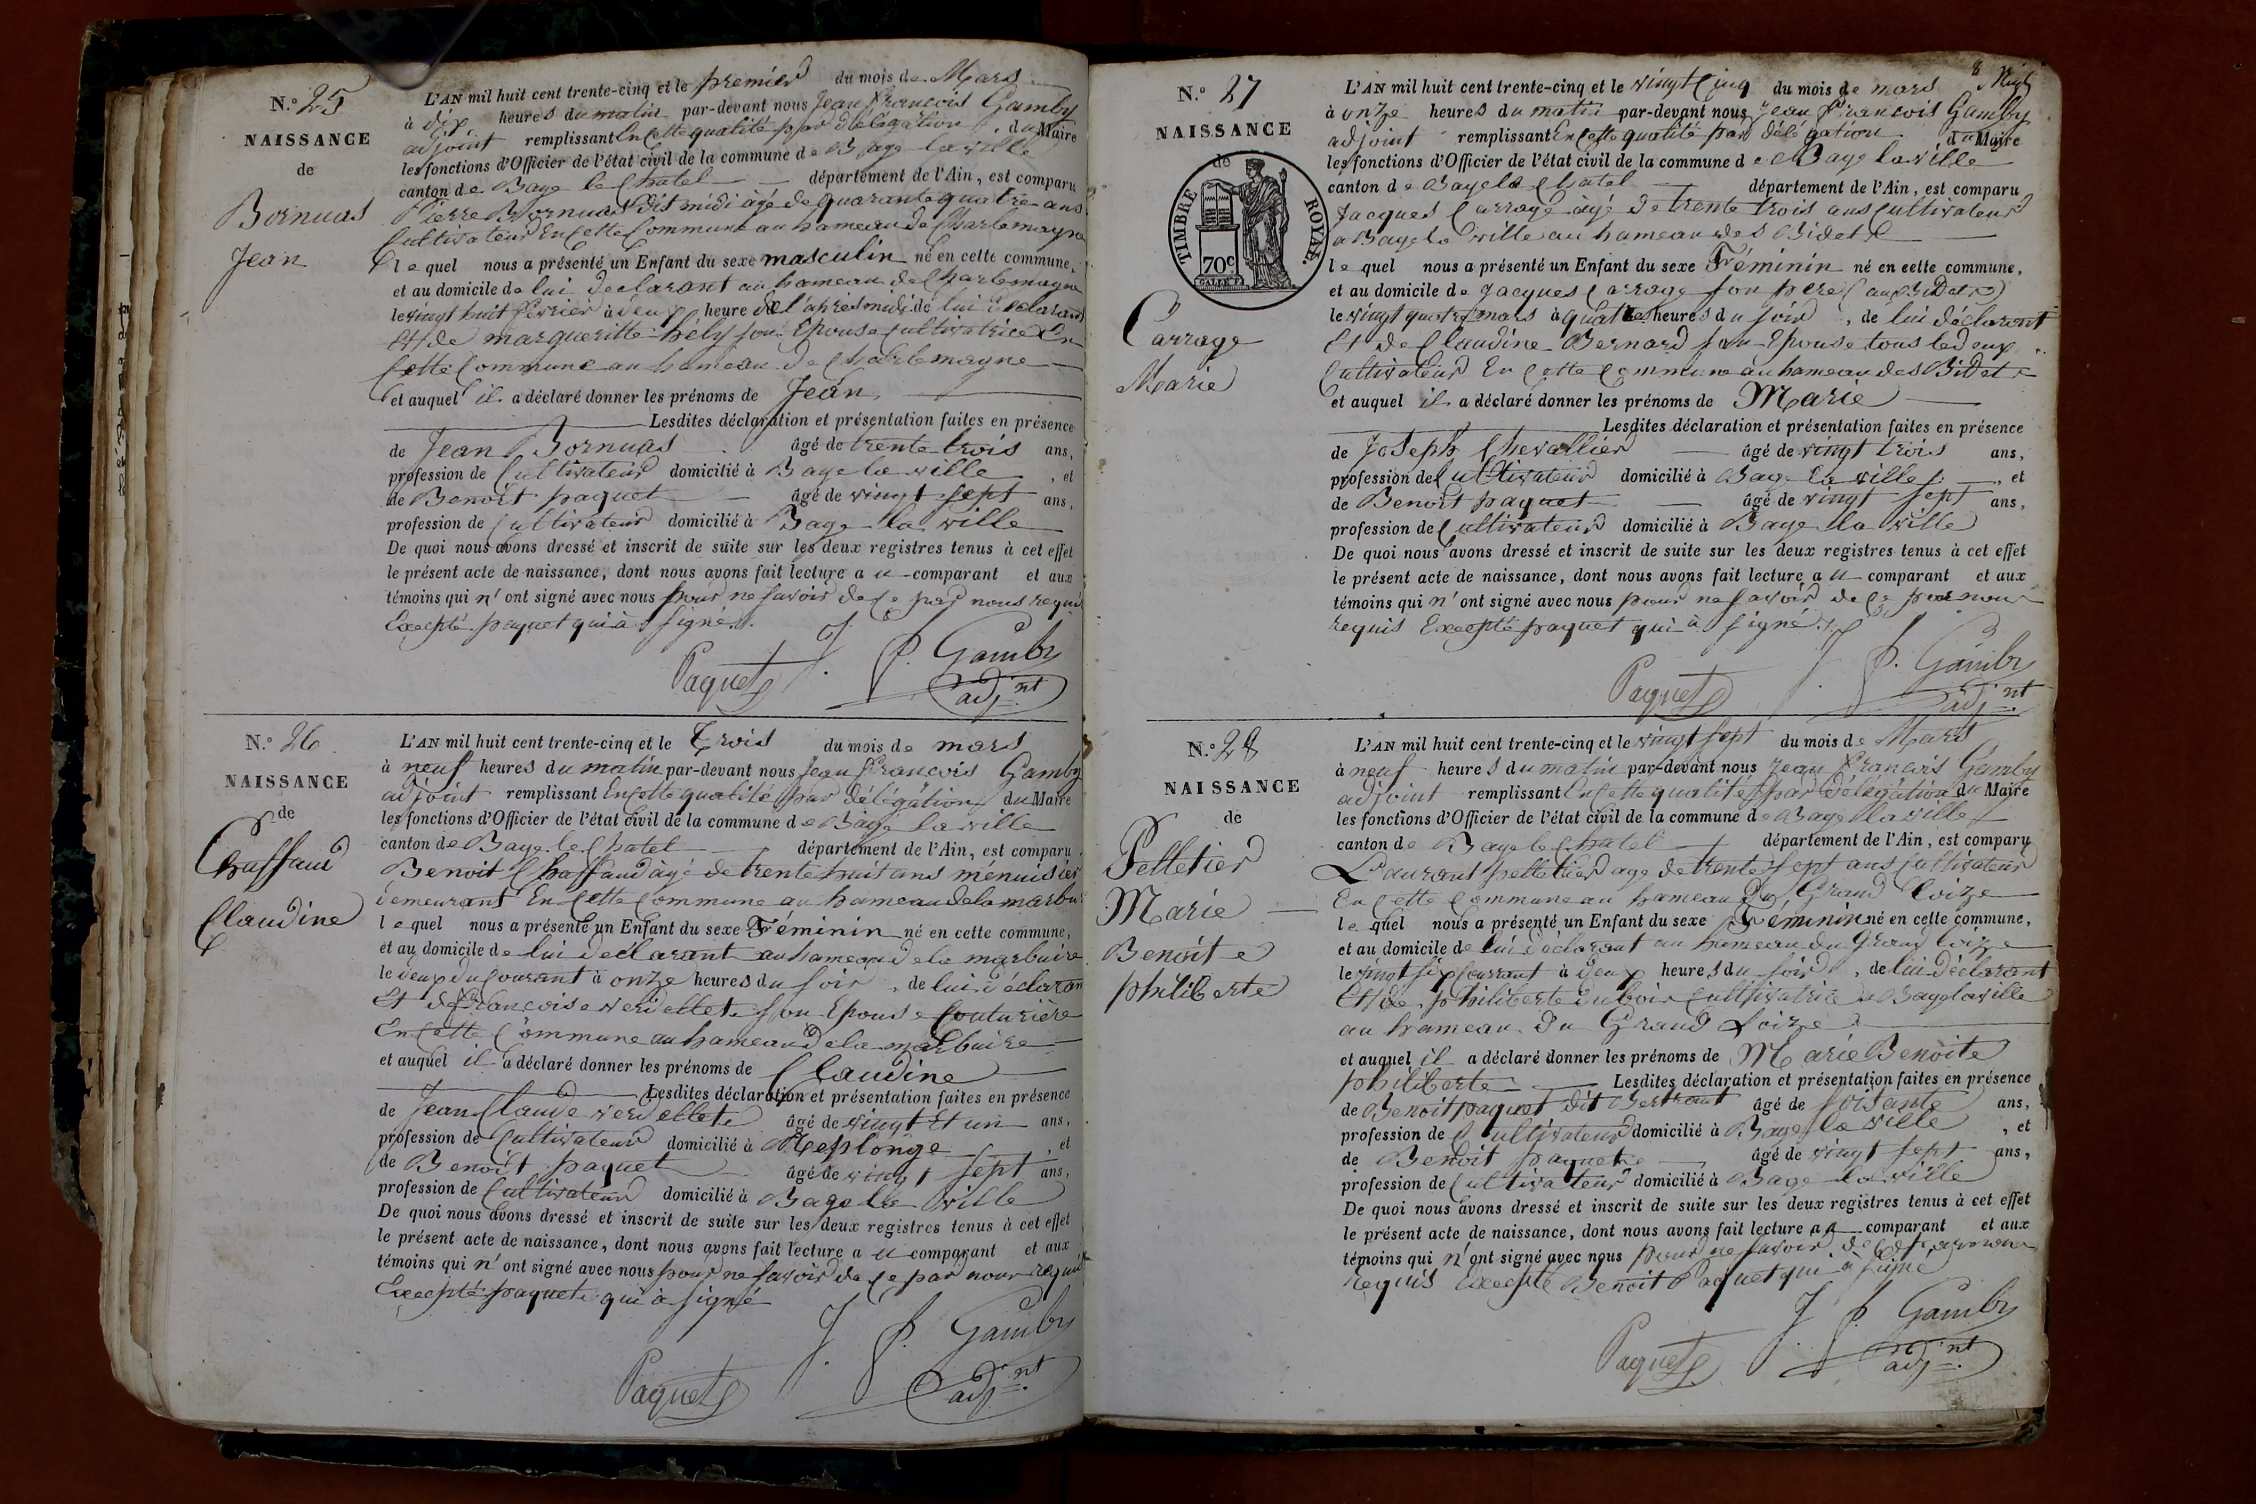 N.° 25
NAISSANCE
de
Bornuas
Jean
L'AN mil huit cent trente-cinq et le premier du mois de Mars
à dix heures du matin par-devant nous Jean François Gamby
adjoint remplissant En cette qualité par délégation du Maire
les fonctions d'Officier de l'état civil de la commune de Bage la ville
canton de Bage le Chatel département de l'Ain, est comparu
Pierre Bornuas dit midi âgé de quarante quatre ans
Cultivateur En cette Commune au hameau de Charlemagne
lequel nous a présenté un Enfant du sexe masculin né en cette commune,
et au domicile de lui déclarant au hameau de Charlemagne
le vingt huit février à deux heure de l'après midi de lui Déclarant
Et de margueritte hely son Epouse cultivatrice En
Cette Commune au hameau de Charlemagne
et auquel il a déclaré donner les prénoms de Jean
Lesdites déclaration et présentation faites en présence
de Jean Bornuas âgé de trente trois ans,
profession de Cultivateur domicilié à Bage la ville , et
de Benoit paquet âgé de vingt sept ans,
profession de Cultivateur domicilié à Bage la ville
De quoi nous avons dressé et inscrit de suite sur les deux registres tenus à cet effet
le présent acte de naissance, dont nous avons fait lecture au comparant et aux
témoins qui n'ont signé avec nous pour ne savoir de ce par nous requis
Excepté paquet qui à signé.
Paquet J. F. Gamby
adj.nt
N.° 26
NAISSANCE
de
Chaffaud
Claudine
L'AN mil huit cent trente-cinq et le Trois du mois de mars
à neuf heures du matin par-devant nous Jean François Gamby
adjoint remplissant En cette qualité par délégation du Maire
les fonctions d'Officier de l'état civil de la commune de Bage la ville
canton de Bage le Chatel département de l'Ain, est comparu
Benoit Chaffaud âgé de trente huit ans ménuisier
demeurant En Cette Commune au hameau de la marbuire
lequel nous a présenté un Enfant du sexe Féminin né en cette commune,
et au domicile de lui déclarant au hameau de la marbuire
le deux du Courant à onze heures du soir , de lui déclarant
Et de Françoise veriellet son Epouse Couturière
En Cette Commune au hameau de la marbuire
et auquel il a déclaré donner les prénoms de Claudine
Lesdites déclaration et présentation faites en présence
de Jean Claude veriellet âgé de vingt Et un ans,
profession de Cultivateur domicilié à Replonge , et
de Benoit paquet âgé de vingt sept ans,
profession de Cultivateur domicilié à Bage la ville
De quoi nous avons dressé et inscrit de suite sur les deux registres tenus à cet effet
le présent acte de naissance, dont nous avons fait lecture au comparant et aux
témoins qui n'ont signé avec nous pour ne savoir de ce par nous requis
Excepté paquet qui à signé
Paquet J. F. Gamby
adj.nt
8
N.° 27
NAISSANCE
de
TIMBRE ROYAL.
70c
Carrage
Marie
L'AN mil huit cent trente-cinq et le vingt Cinq du mois de mars
à onze heures du matin par-devant nous Jean François Gamby
adjoint remplissant En cette qualité par délégation du Maire
les fonctions d'Officier de l'état civil de la commune de Bage la ville
canton de Bage le Chatel département de l'Ain, est comparu
Jacques Carrage âgé de trente trois ans Cultivateur
a Bage la ville au hameau des Bidets
lequel nous a présenté un Enfant du sexe Féminin né en cette commune,
et au domicile de Jacques Carrage son père (aux Bidets)
le vingt quatre mars à quatre heures du soir , de lui déclarant
Et de Claudine Bernard son Epouse tous ledeux
Cultivateur En cette commune au hameau des Bidets
et auquel il a déclaré donner les prénoms de Marie
Lesdites déclaration et présentation faites en présence
de Joseph Chevallier âgé de vingt trois ans,
profession de Cultivateur domicilié à Bage la ville , et
de Benoit paquet âgé de vingt sept ans,
profession de Cultivateur domicilié à Bage la ville
De quoi nous avons dressé et inscrit de suite sur les deux registres tenus à cet effet
le présent acte de naissance, dont nous avons fait lecture au comparant et aux
témoins qui n'ont signé avec nous pour ne savoir de ce par nous
requis Excepté paquet qui à signé.
Paquet J. F. Gamby
adj.nt
N.° 28
NAISSANCE
de
Pelletier
Marie
Benoite
philiberte
L'AN mil huit cent trente-cinq et le vingt sept du mois de Mars
à neuf heures du matin par-devant nous Jean François Gamby
adjoint remplissant En cette qualité par délégation du Maire
les fonctions d'Officier de l'état civil de la commune de Bage la ville
canton de Bage le Chatel département de l'Ain, est comparu
Laurant pelletier age de trente sept ans Cultivateur
En cette Commune au hameau Du Grand Loize
lequel nous a présenté un Enfant du sexe Féminin né en cette commune,
et au domicile de lui déclarant au hameau du Grand Loize
le vingt six courant à deux heures du soir , de lui déclarant
Et de philiberte dubois Cultivatrice a Bage la ville
au hameau du Grand Loize
et auquel il a déclaré donner les prénoms de Marie Benoite
philiberte Lesdites déclaration et présentation faites en présence
de Benoit paquet dit Bertrant âgé de soisante ans,
profession de Cultivateur domicilié à Bage la ville , et
de Benoit paquet âgé de vingt sept ans,
profession de Cultivateur domicilié à Bage la ville
De quoi nous avons dressé et inscrit de suite sur les deux registres tenus à cet effet
le présent acte de naissance, dont nous avons fait lecture au comparant et aux
témoins qui n'ont signé avec nous pour ne savoir de ce par nous
requis Excepté Benoit Paquet qui à signé
Paquet J. F. Gamby
adj.nt